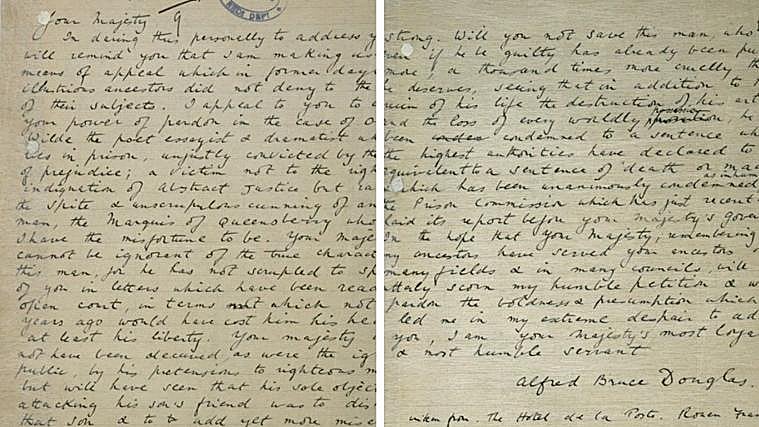 Your Majesty
9
RECD. DEPT
In daring thus personally to address y
will remind you that I am making us
means of appeal which in former day
illustrious ancestors did not deny to the
of their subjects. I appeal to you to
your power of pardon in the case of O
Wilde the poet essayist & dramatist wh
lies in prison, unjustly convicted by the
of prejudice; a victim not to the righ
indignation of abstract justice but ra
the spite & unscrupulous cunning of an
man, the Marquis of Queensberry whos
I have the misfortune to be. Your maje
cannot be ignorant of the true charact
this man, for he has not scrupled to sp
of you in letters which have been read
open court, in terms which not
years ago would have cost him his hea
at least his liberty. Your majesty
not have been deceived, as were the ig
public, by his pretensions to righteous m
but will have seen that his sole object
attacking his son's friend was to dis
that son & to add yet more mise
strong. Will you not save this man, who
even if he be guilty has already been pu
more, a thousand times more cruelly th
he deserves, seeing that in addition to
ruin of his life the destruction of his art
and the loss of every worldly possession, he
been condemned to a sentence wh
the highest authorities have declared to
equivalent to a sentence of death or mad
which has been unanimously condemned
as inhum
the Prison Commission which has just recent
laid its report before your majesty's gover
In the hope that Your Majesty, remembering
my ancestors have served your ancestors
many fields & in many councils, will
utterly scorn my humble petition & w
pardon the boldness & presumption which
led me in my extreme despair to ad
you, I am your majesty's most loya
& most humble servant
Alfred Bruce Douglas.
The Hotel de la Poste. Rouen Fran